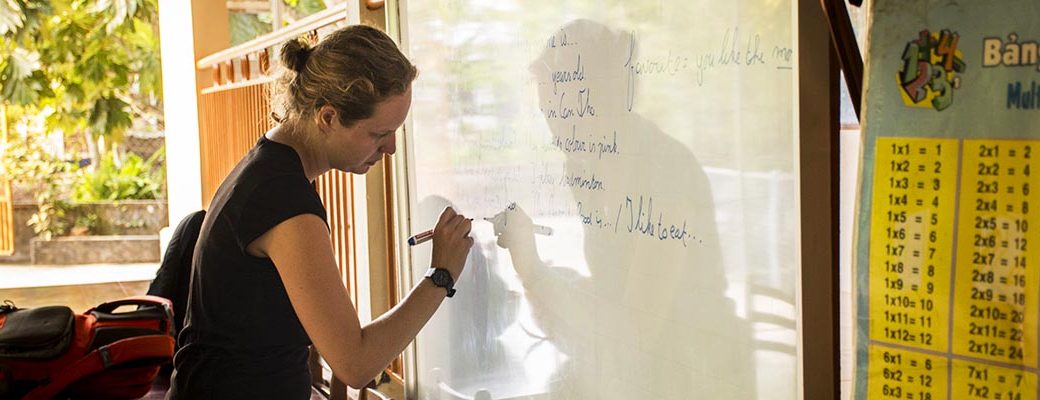 is... favorite = you like the mo
years old.
in Can Tho.
colour is pink.
badminton
food is... / I like to eat...
Bảng
Mult
1x1 = 1
1x2 = 2
1x3 = 3
1x4 = 4
1x5 = 5
1x6 = 6
1x7 = 7
1x8 = 8
1x9 = 9
1x10= 10
1x11= 11
1x12= 12
2x1 = 2
2x2 = 4
2x3 = 6
2x4 = 8
2x5 = 10
2x6 = 12
2x7 = 14
2x8 = 16
2x9 = 18
2x10= 20
2x11= 22
2x12= 24
6x1 = 6
6x2 = 12
6x3 = 18
7x1 = 7
7x2 = 14